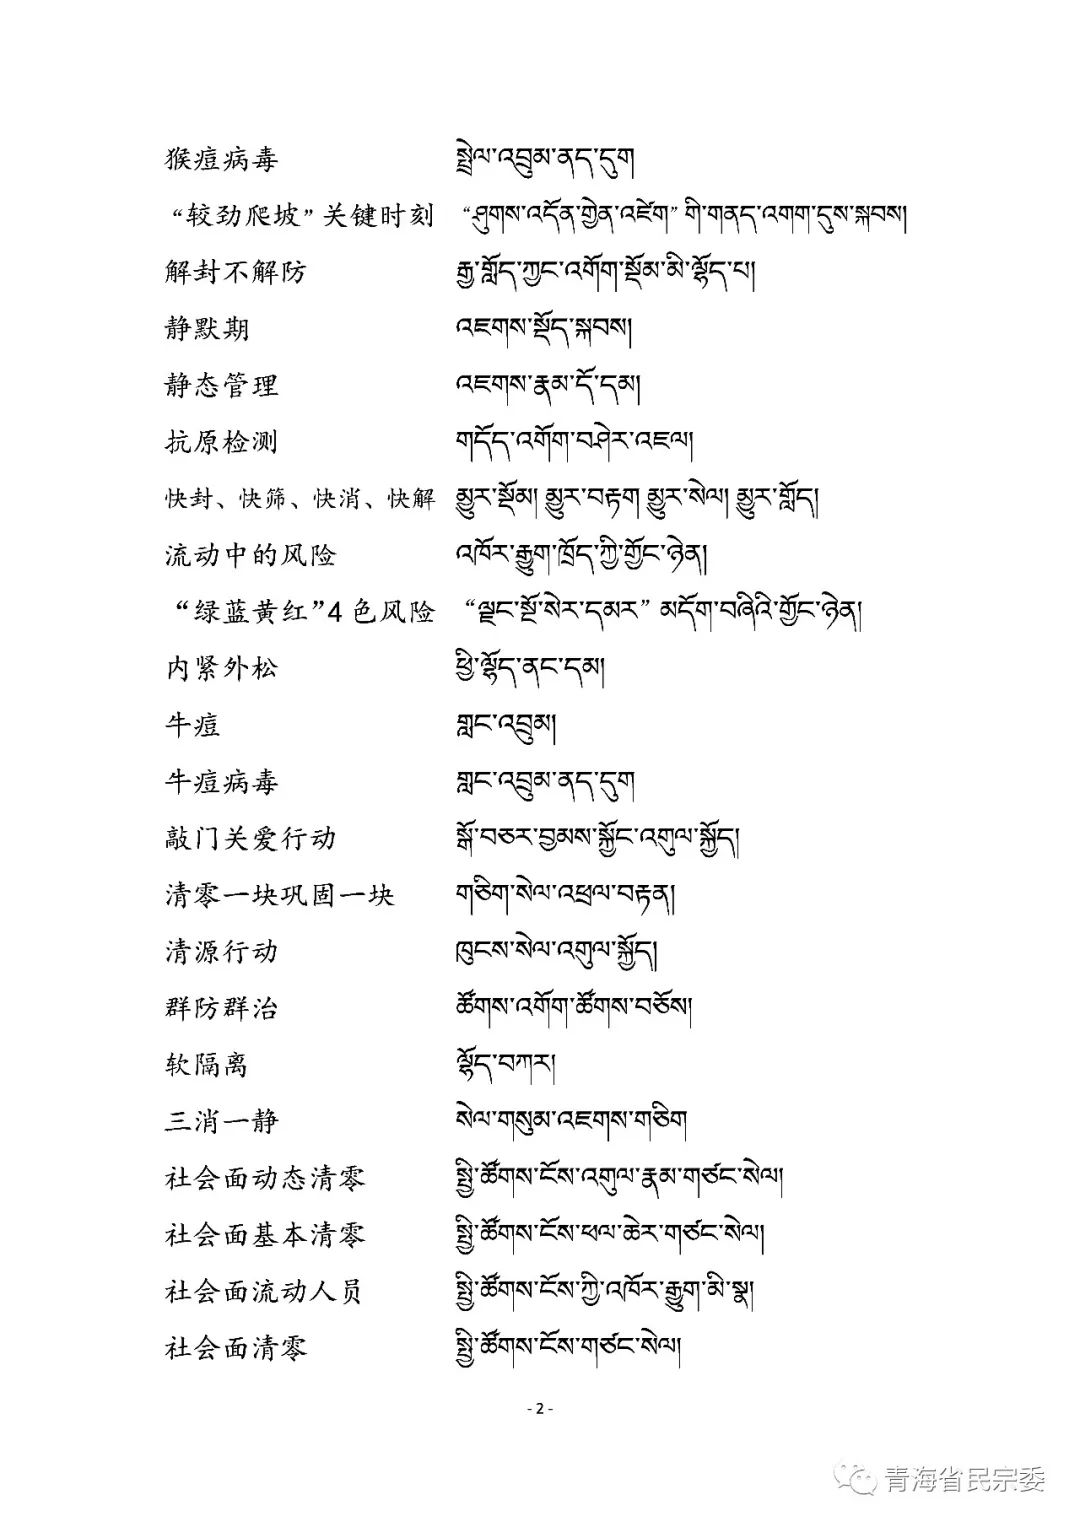 猴痘病毒 སྤྲེལ་འབྲུམ་ནད་དུག
“较劲爬坡”关键时刻 “ཤུགས་འདོན་གྱེན་འཛེག”གི་གནད་འགག་དུས་སྐབས།
解封不解防 རྒྱ་གློད་ཀྱང་འགོག་སྡོམ་མི་ལྷོད་པ།
静默期 འཇགས་སྡོད་སྐབས།
静态管理 འཇགས་རྣམ་དོ་དམ།
抗原检测 གདོད་འགོག་བཤེར་འཇལ།
快封、快筛、快消、快解 མྱུར་སྡོམ། མྱུར་བརྟག མྱུར་སེལ། མྱུར་གློད།
流动中的风险 འཁོར་རྒྱུག་ཁྲོད་ཀྱི་གྱོང་ཉེན།
“绿蓝黄红”4色风险 “ལྗང་སྔོ་སེར་དམར”མདོག་བཞིའི་གྱོང་ཉེན།
内紧外松 ཕྱི་ལྷོད་ནང་དམ།
牛痘 གླང་འབྲུམ།
牛痘病毒 གླང་འབྲུམ་ནད་དུག
敲门关爱行动 སྒོ་བཅར་བྱམས་སྐྱོང་འགུལ་སྐྱོད།
清零一块巩固一块 གཅིག་སེལ་འཕྲལ་བརྟན།
清源行动 ཁུངས་སེལ་འགུལ་སྐྱོད།
群防群治 ཚོགས་འགོག་ཚོགས་བཅོས།
软隔离 ལྷོད་བཀར།
三消一静 སེལ་གསུམ་འཇགས་གཅིག
社会面动态清零 སྤྱི་ཚོགས་ངོས་འགུལ་རྣམ་གཙང་སེལ།
社会面基本清零 སྤྱི་ཚོགས་ངོས་ཕལ་ཆེར་གཙང་སེལ།
社会面流动人员 སྤྱི་ཚོགས་ངོས་ཀྱི་འཁོར་རྒྱུག་མི་སྣ།
社会面清零 སྤྱི་ཚོགས་ངོས་གཙང་སེལ།
- 2 -
青海省民宗委